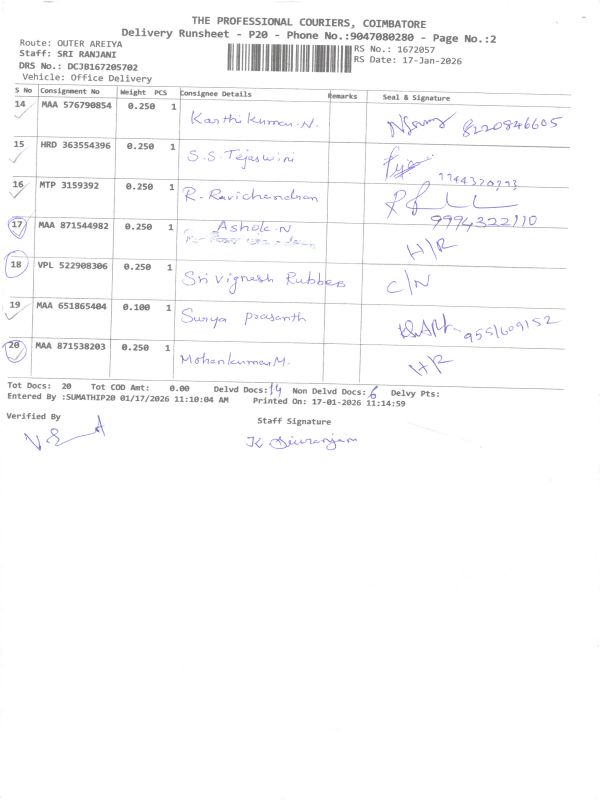 THE PROFESSIONAL COURIERS, COIMBATORE
Delivery Runsheet - P20 - Phone No.:9047080280 - Page No.:2
Route: OUTER AREIYA
Staff: SRI RANJANI
RS No.: 1672057
DRS No.: DCJB167205702
RS Date: 17-Jan-2026
Vehicle: Office Delivery
S No Consignment No Weight PCS Consignee Details Remarks Seal & Signature
14 MAA 576790854 0.250 1 Karthikumar.N. 8220846605
15 HRD 363554396 0.250 1 S.S.Tejaswini
16 MTP 3159392 0.250 1 R.Ravichandran 9994322110
17 MAA 871544982 0.250 1 Ashok.N H/R
18 VPL 522908306 0.250 1 Sri Vignesh Rubbers C/N
19 MAA 651865404 0.100 1 Surya prasanth 9551609152
20 MAA 871538203 0.250 1 Mohankumar M. H/R
Tot Docs: 20 Tot COD Amt: 0.00 Delvd Docs: 14 Non Delvd Docs: 6 Delvy Pts:
Entered By :SUMATHIP20 01/17/2026 11:10:04 AM Printed On: 17-01-2026 11:14:59
Verified By
Staff Signature